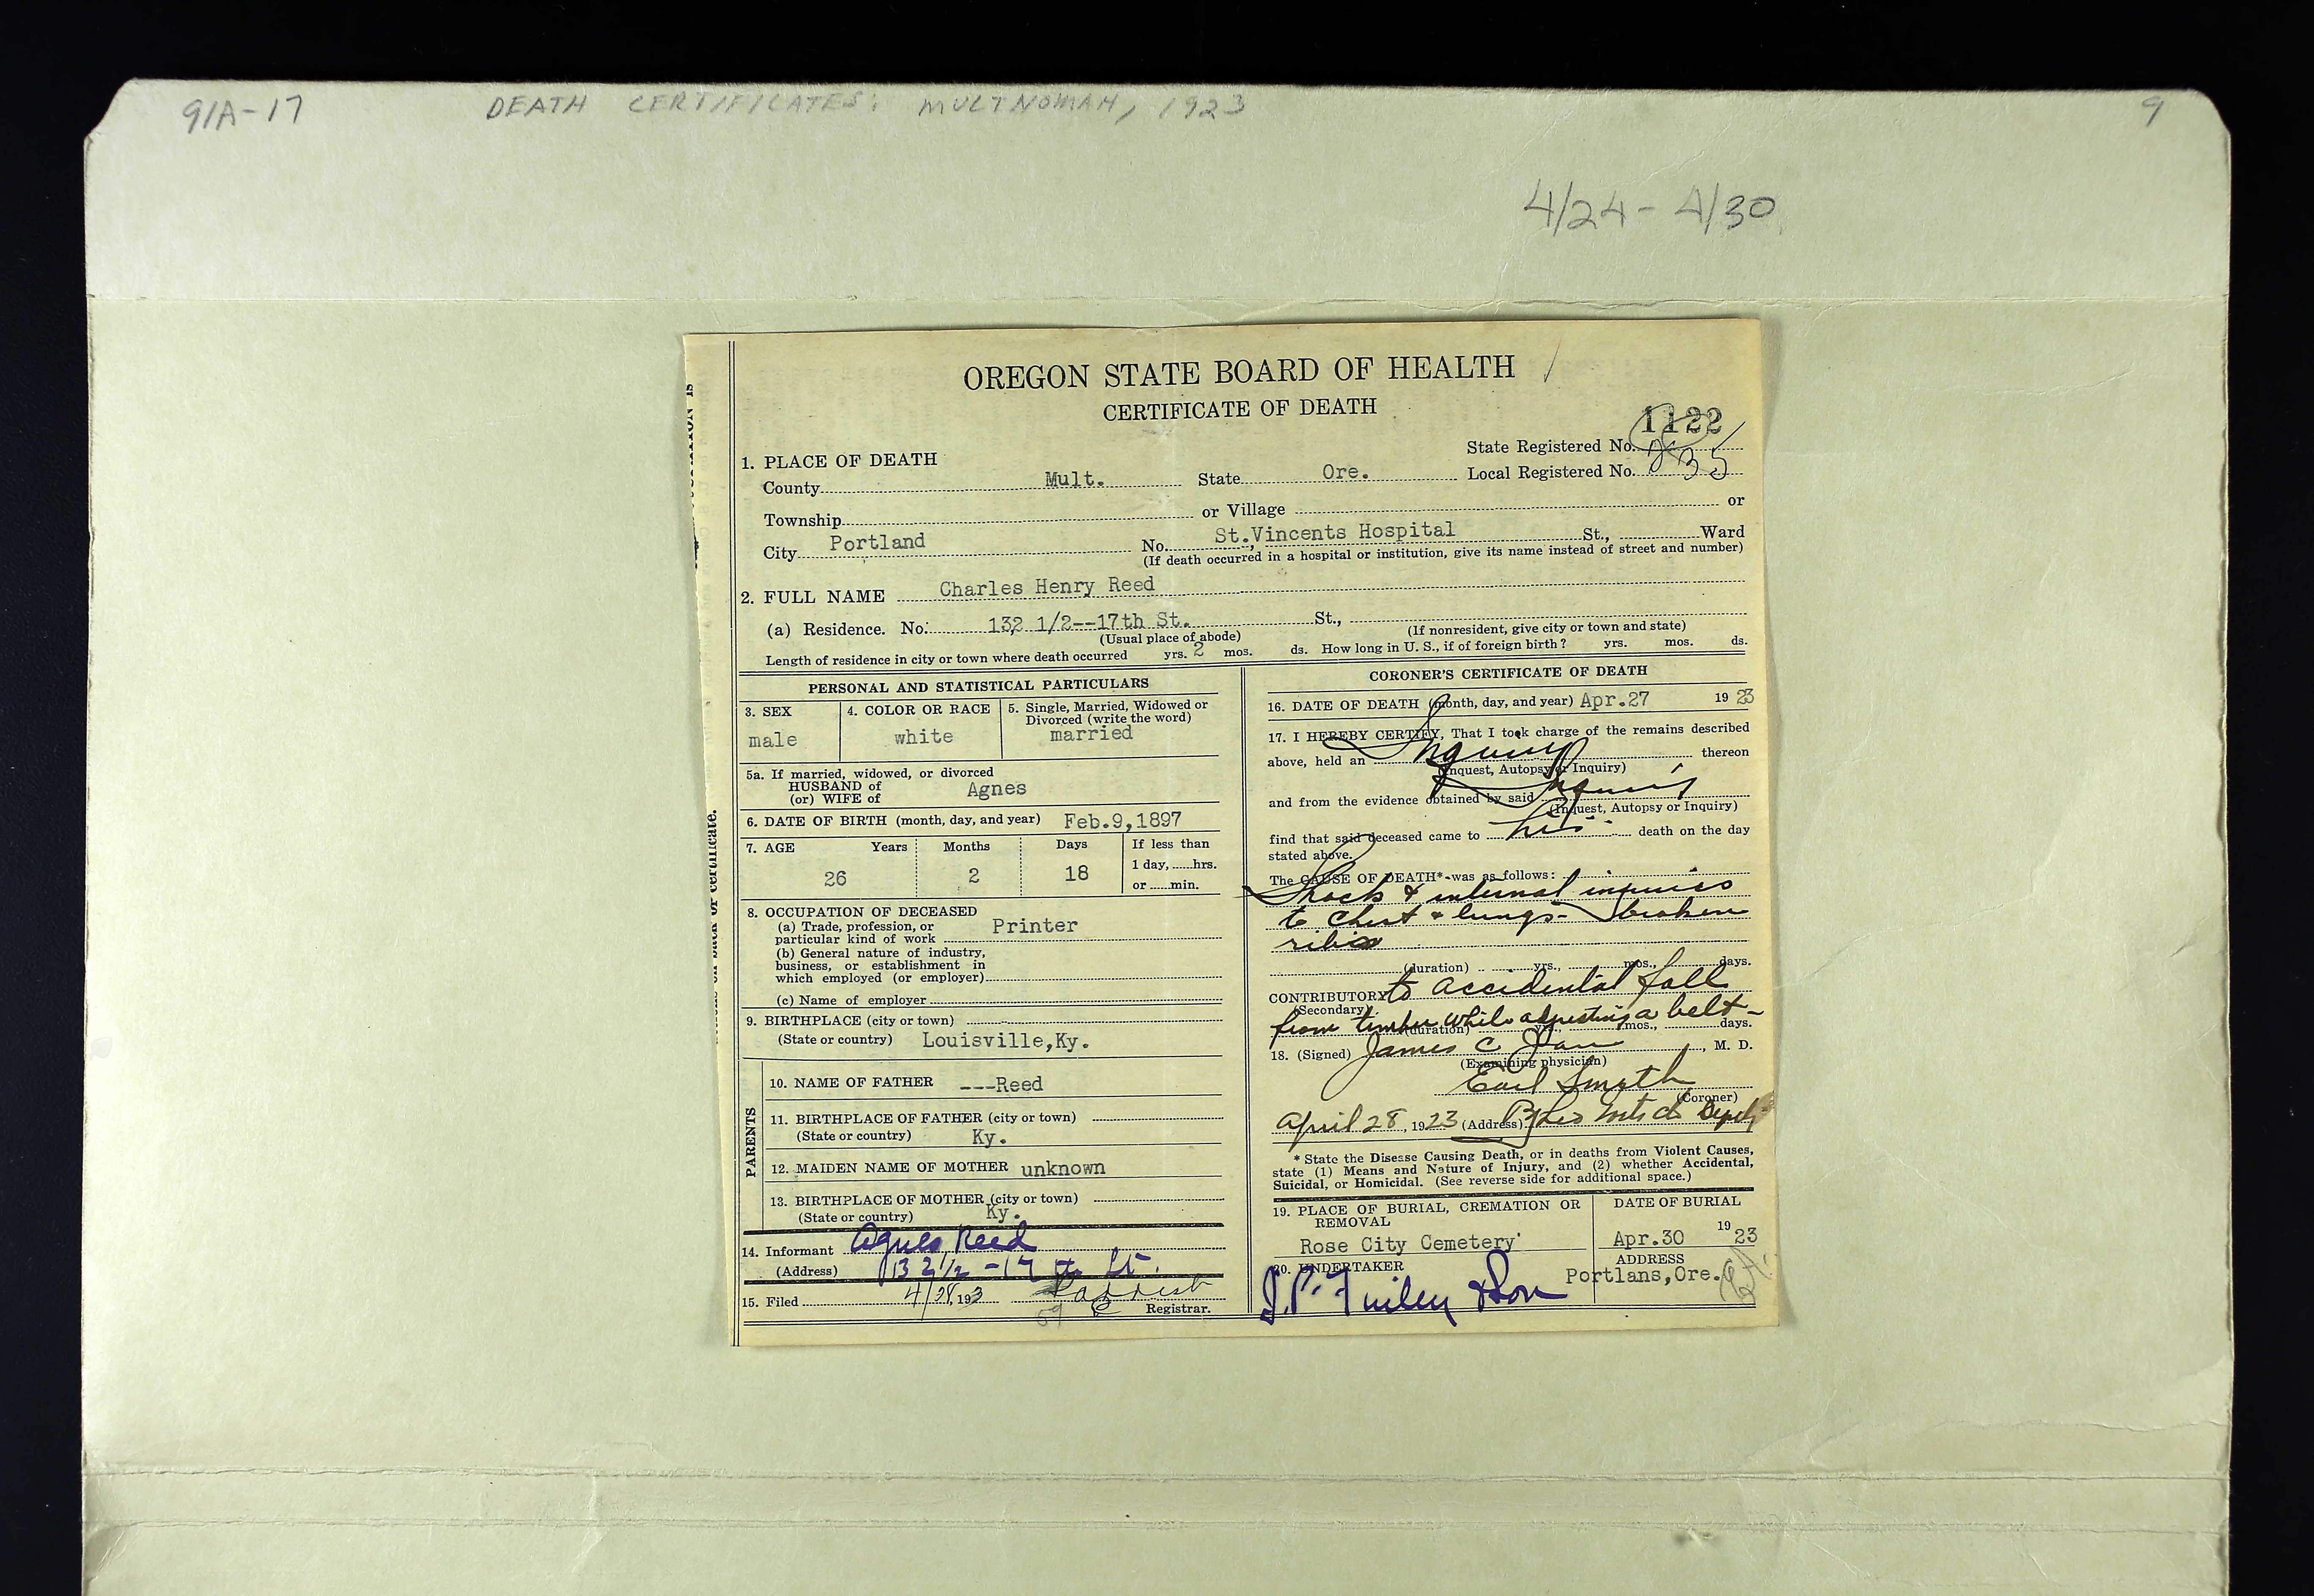 91A-17 DEATH CERTIFICATES: MULTNOMAH, 1923 9
4/24 - 4/30
OREGON STATE BOARD OF HEALTH
CERTIFICATE OF DEATH
1122
State Registered No.
1. PLACE OF DEATH
Local Registered No.
County Mult. State Ore.
Township or Village or
City Portland No. St.Vincents Hospital St., Ward
(If death occurred in a hospital or institution, give its name instead of street and number)
2. FULL NAME Charles Henry Reed
(a) Residence. No. 132 1/2--17th St. St.,
(Usual place of abode) (If nonresident, give city or town and state)
Length of residence in city or town where death occurred yrs. 2 mos. ds. How long in U. S., if of foreign birth? yrs. mos. ds.
PERSONAL AND STATISTICAL PARTICULARS
3. SEX 4. COLOR OR RACE 5. Single, Married, Widowed or
Divorced (write the word)
male white married
5a. If married, widowed, or divorced
HUSBAND of
(or) WIFE of Agnes
6. DATE OF BIRTH (month, day, and year) Feb.9,1897
7. AGE Years Months Days If less than
1 day, hrs.
26 2 18
or min.
8. OCCUPATION OF DECEASED
(a) Trade, profession, or
particular kind of work Printer
(b) General nature of industry,
business, or establishment in
which employed (or employer)
(c) Name of employer
9. BIRTHPLACE (city or town)
(State or country) Louisville,Ky.
PARENTS
10. NAME OF FATHER ---Reed
11. BIRTHPLACE OF FATHER (city or town)
(State or country) Ky.
12. MAIDEN NAME OF MOTHER unknown
13. BIRTHPLACE OF MOTHER (city or town)
(State or country) Ky.
14. Informant Agnes Reed
(Address) 132 1/2 - 17th St.
15. Filed 4/28, 193
Registrar.
CORONER'S CERTIFICATE OF DEATH
16. DATE OF DEATH (month, day, and year) Apr.27 1923
17. I HEREBY CERTIFY, That I took charge of the remains described
above, held an Inquiry thereon
(Inquest, Autopsy or Inquiry)
and from the evidence obtained by said Inquiry
(Inquest, Autopsy or Inquiry)
find that said deceased came to his death on the day
stated above.
The CAUSE OF DEATH* was as follows:
Shock & internal injuries
to chest & lungs - broken
ribs
(duration) yrs., mos., days.
CONTRIBUTORY to accidental fall
(Secondary)
from timber while adjusting a belt -
(duration) mos., days.
18. (Signed) James C , M. D.
(Examining physician)
Earl Smyth
(Coroner)
April 28, 1923 (Address) By Depty
* State the Disease Causing Death, or in deaths from Violent Causes,
state (1) Means and Nature of Injury, and (2) whether Accidental,
Suicidal, or Homicidal. (See reverse side for additional space.)
19. PLACE OF BURIAL, CREMATION OR
REMOVAL
DATE OF BURIAL
Rose City Cemetery Apr.30 1923
20. UNDERTAKER ADDRESS
J.P. Finley & Son Portlans,Ore.